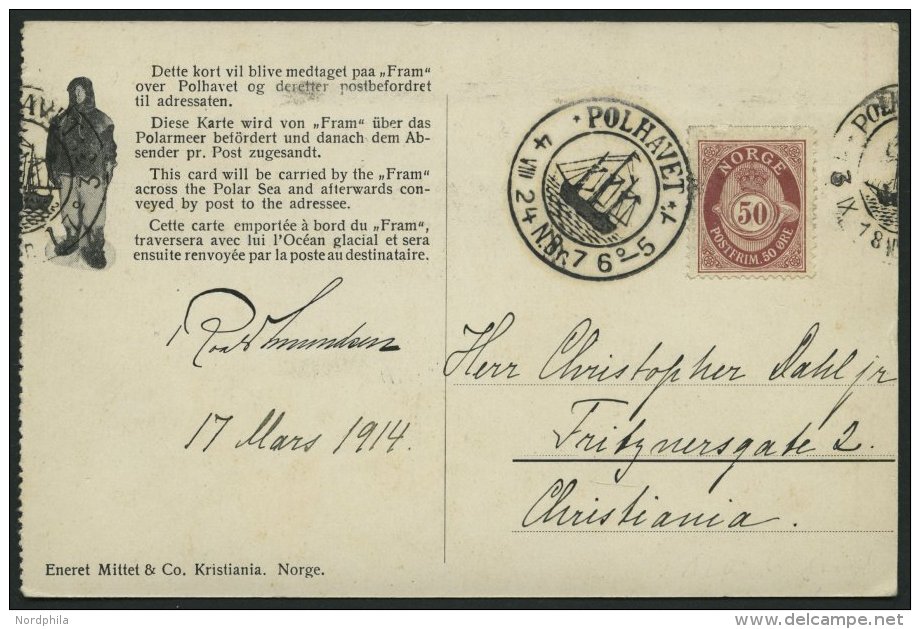 Dette kort vil blive medtaget paa „Fram“
over Polhavet og derefter postbefordret
til adressaten.
Diese Karte wird von „Fram“ über das
Polarmeer befördert und danach dem Ab-
sender pr. Post zugesandt.
This card will be carried by the „Fram“
across the Polar Sea and afterwards con-
veyed by post to the adressee.
Cette carte emportée à bord du „Fram“,
traversera avec lui l'Océan glacial et sera
ensuite renvoyée par la poste au destinataire.
Roald Amundsen
17 Mars 1914.
Eneret Mittet & Co. Kristiania. Norge.
POLHAVET
4 VIII 24 N.Br. 76°-5
NORGE
50
POSTFRIM. 50 ØRE
Herr Christopher Dahl jr
Fritznersgate 2.
Christiania.
Nordphila
delcampe.net